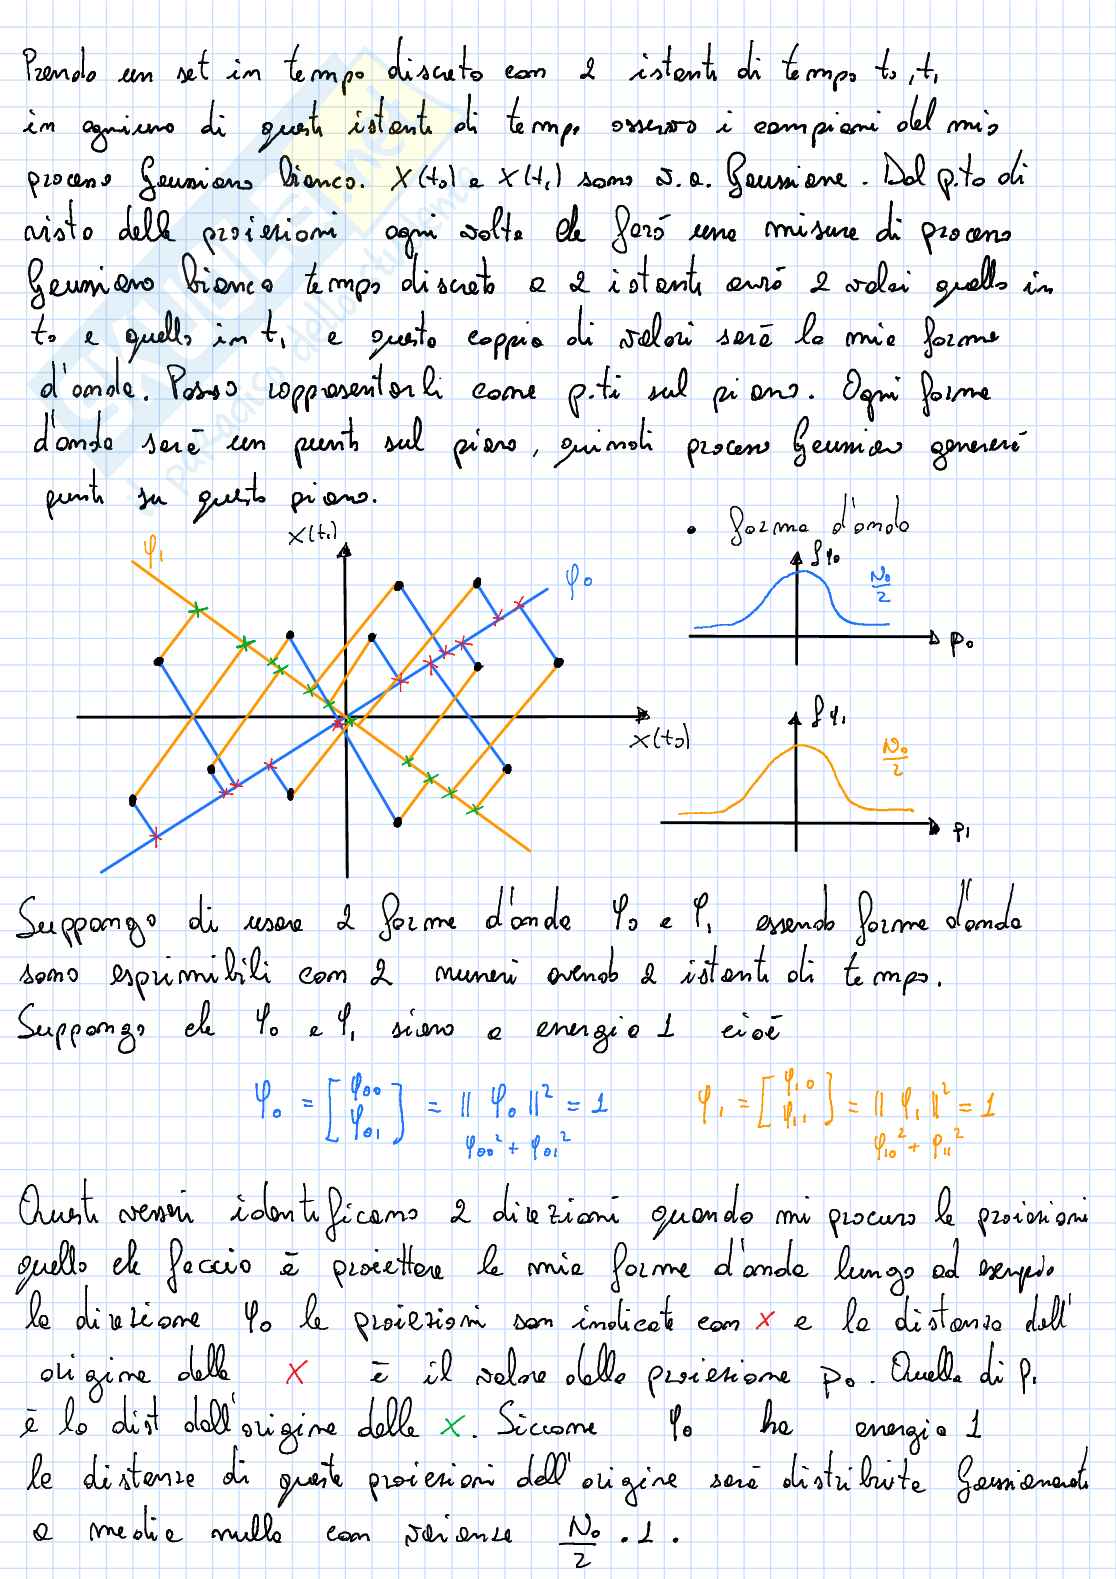 Prendo un set in tempo discreto con 2 istanti di tempo t₀, t₁
in ognuno di questi istanti di tempo osservo i campioni del mio
processo Gaussiano bianco. X(t₀) e X(t₁) sono v.a. Gaussiane. Dal p.to di
vista delle proiezioni ogni volta che farò una misura di processo
Gaussiano bianco tempo discreto a 2 istanti avrò 2 valori quello in
t₀ e quello in t₁ e questa coppia di valori sarà la mia forma
d'onda. Posso rappresentarli come p.ti sul piano. Ogni forma
d'onda sarà un punto sul piano, quindi processo Gaussiano genererà
punti su questo piano.
• forma d'onda
X(t₁)
φ₁
φ₀
X(t₀)
fφ₀
N₀/2
p₀
fφ₁
N₀/2
p₁
Suppongo di usare 2 forme d'onda φ₀ e φ₁ essendo forme d'onda
sono esprimibili con 2 numeri avendo 2 istanti di tempo.
Suppongo che φ₀ e φ₁ siano a energia 1 cioè
φ₀ = [φ₀₀ φ₀₁] = ||φ₀||² = 1
φ₀₀² + φ₀₁²
φ₁ = [φ₁₀ φ₁₁] = ||φ₁||² = 1
φ₁₀² + φ₁₁²
Questi versori identificano 2 direzioni quando mi procuro le proiezioni
quello che faccio è proiettare la mia forma d'onda lungo ad esempio
la direzione φ₀ le proiezioni son indicate con X e la distanza dall'
origine delle X è il valore della proiezione p₀. Quella di p₁
è la dist dall'origine delle X. Siccome φ₀ ha energia 1
le distanze di queste proiezioni dall'origine sarà distribuita Gaussianamente
a media nulla con varianza N₀/2 · 1.